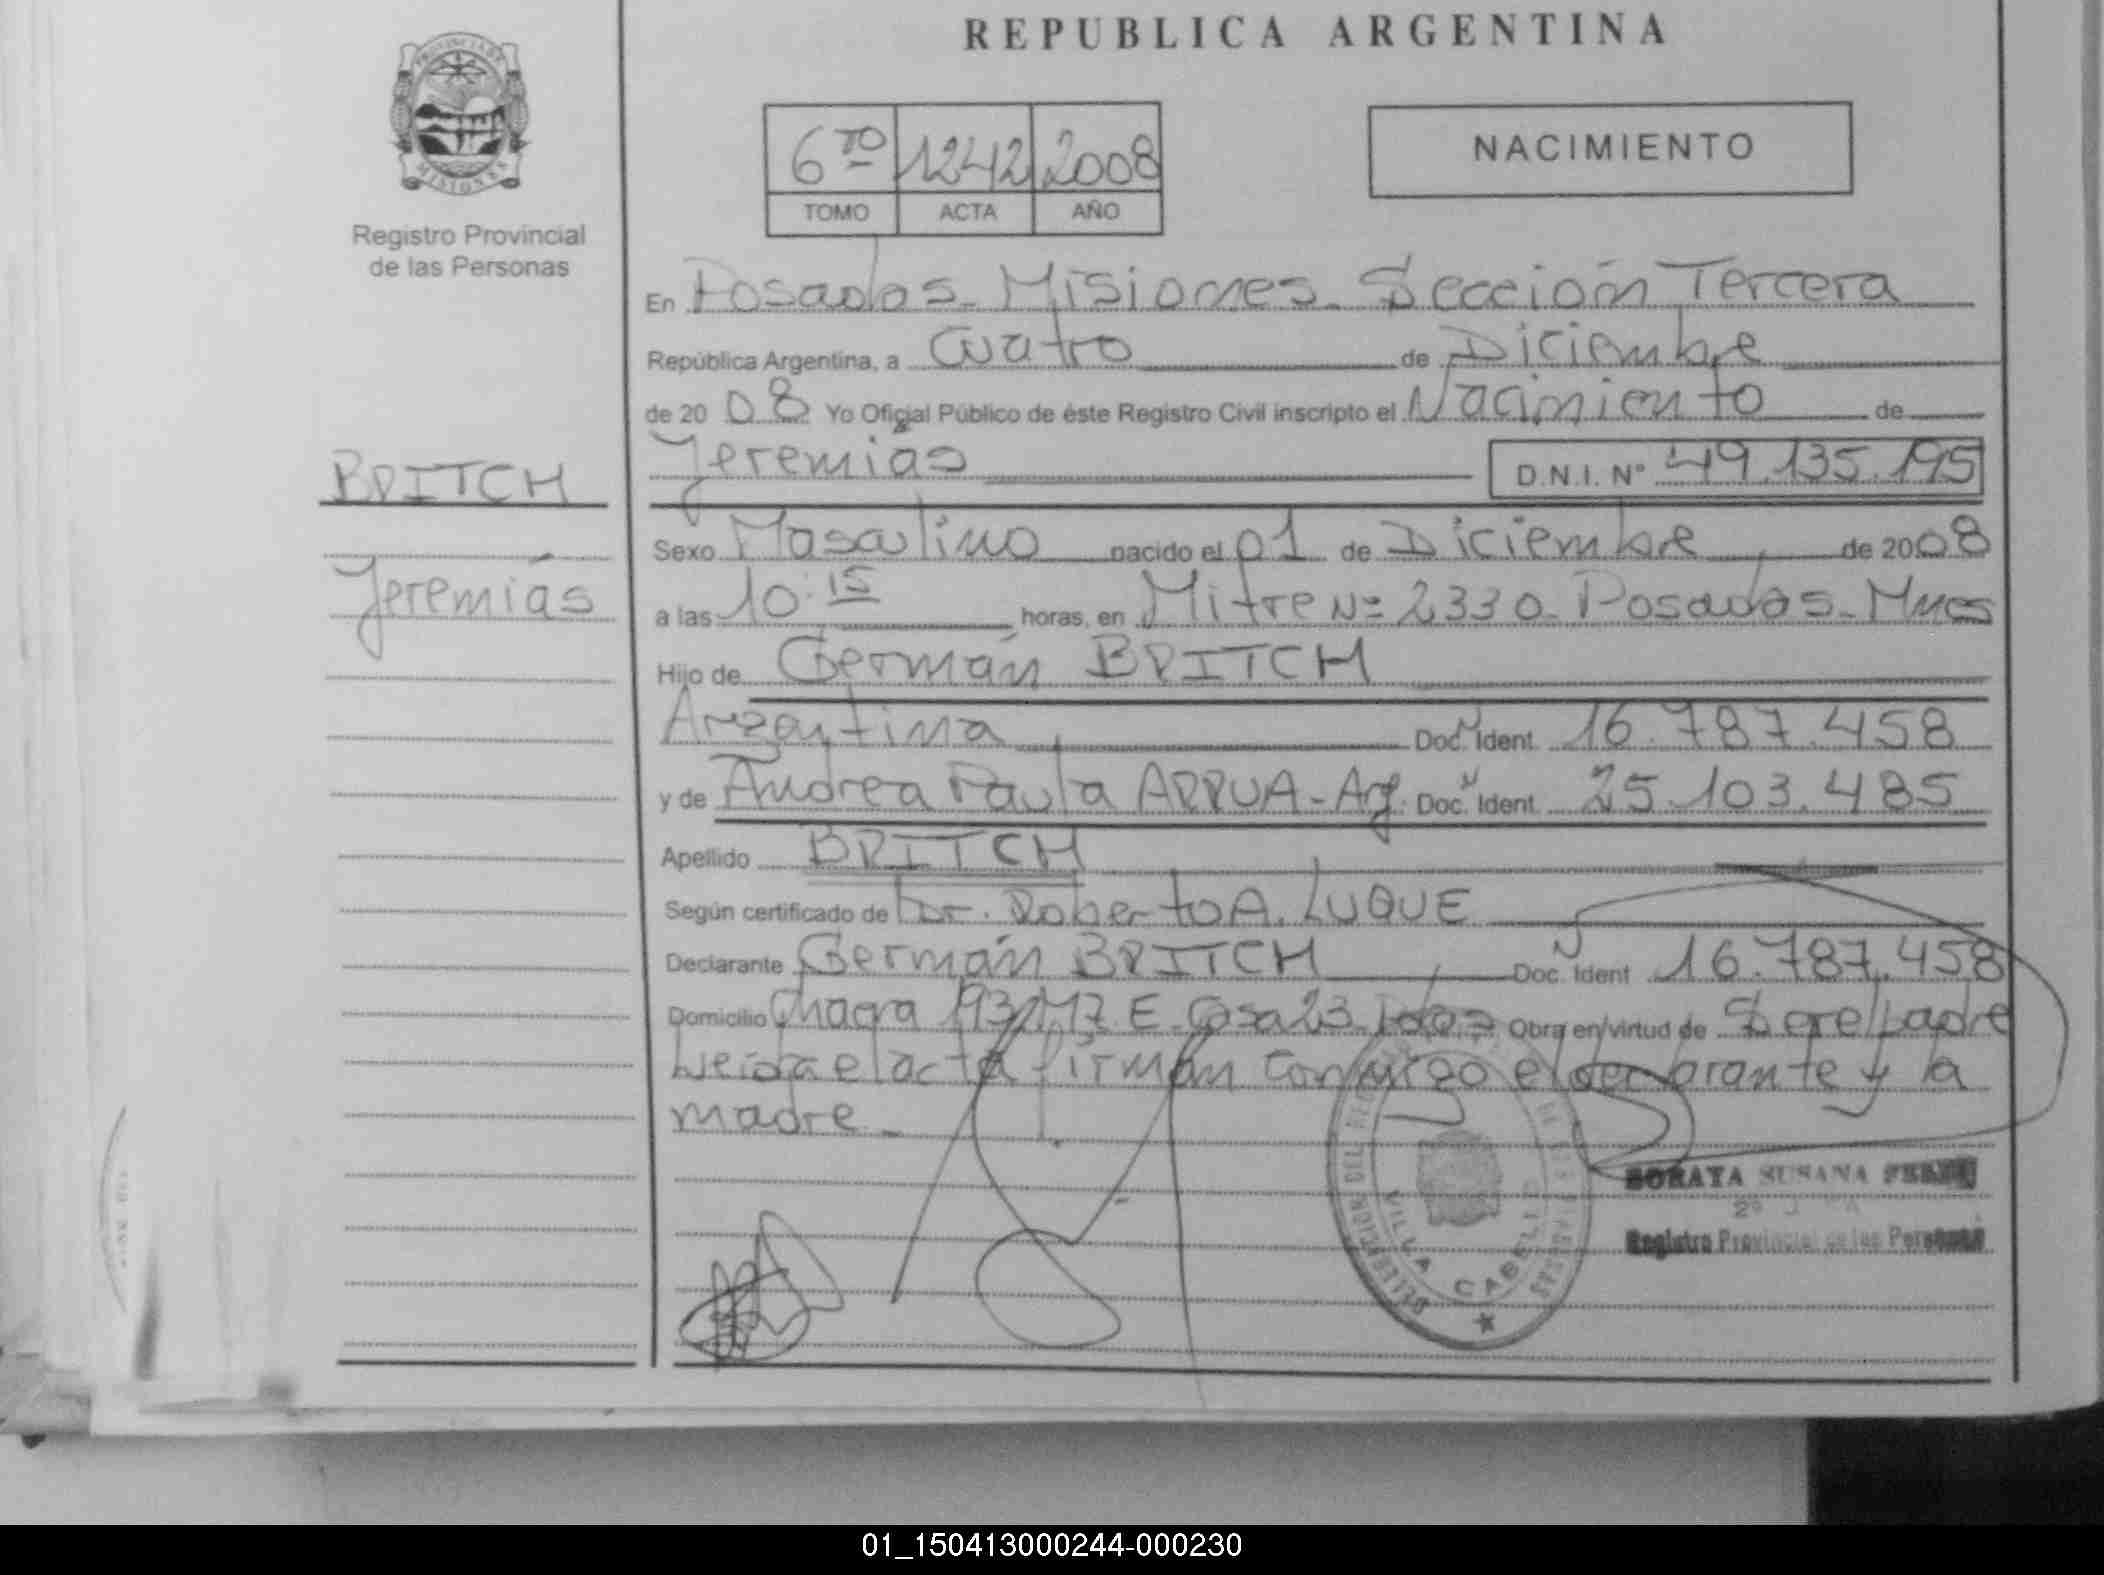 REPUBLICA ARGENTINA
PROVINCIA DE
MISIONES
Registro Provincial
de las Personas
6TO 1242 2008
TOMO ACTA AÑO
NACIMIENTO
En Posadas - Misiones - Sección Tercera
República Argentina, a Cuatro de Diciembre
de 2008 Yo Oficial Público de éste Registro Civil inscripto el Nacimiento de
Jeremías D.N.I. Nº 49.135.195
BRITCH
Jeremías
Sexo Masculino nacido el 01 de Diciembre de 2008
a las 10:15 horas, en Mitre Nº 2330 - Posadas - Mnes
Hijo de Germán BRITCH
Argentina Doc. Ident. 16.787.458
y de Andrea Paula ARRUA - Arg. Doc. Ident. 25.103.485
Apellido BRITCH
Según certificado de Dr. Roberto A. LUQUE
Declarante Germán BRITCH Doc. Ident 16.787.458
Domicilio Chacra 193 E Casa 23 Obra en virtud de Ser el padre
Leída el acta firman conmigo el declarante y la
madre -
VILLA CABELLO
SORAYA SUSANA
Registro Provincial de las Personas
01_150413000244-000230